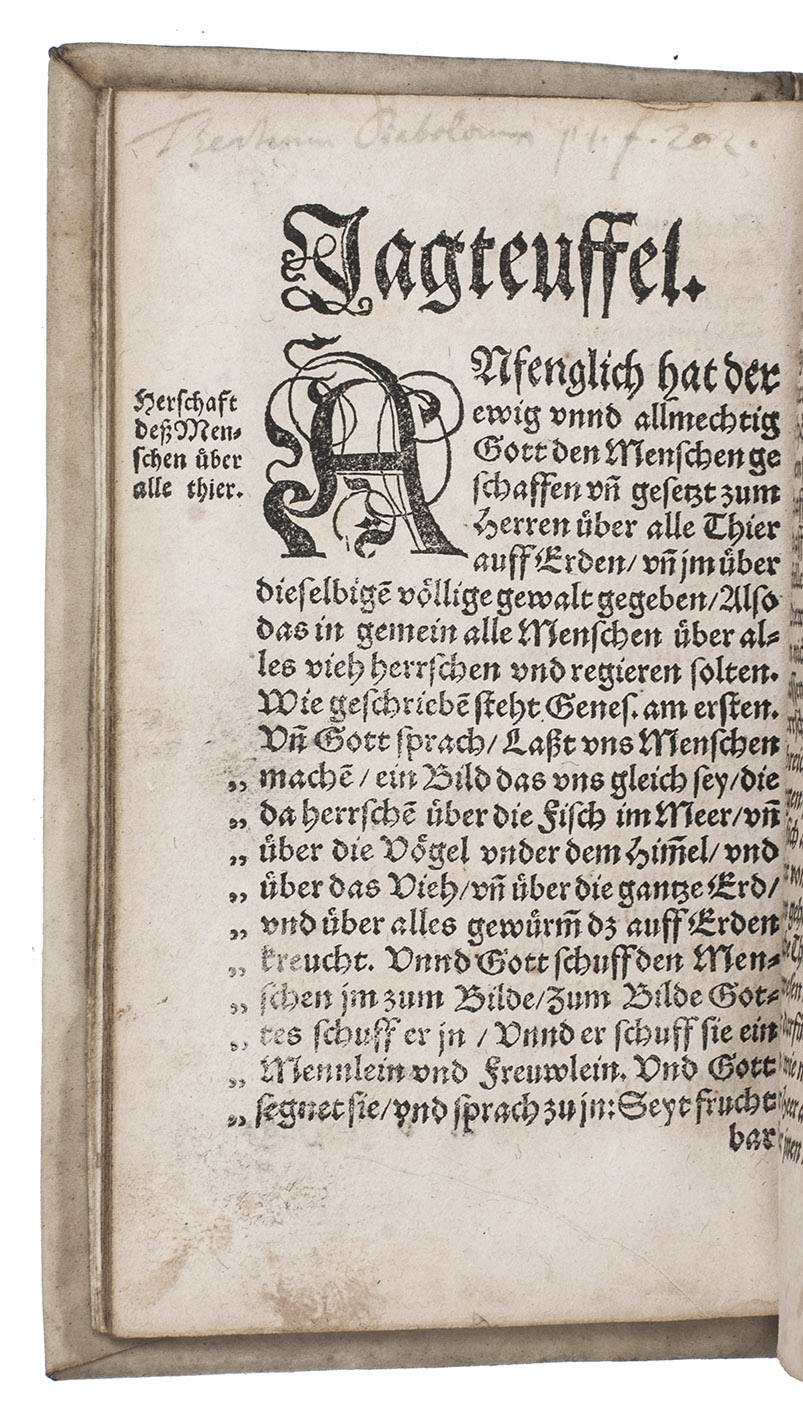 Theatrum Diabolorum p1. f. 202.
Jagteuffel.
Herschaft
deß Men-
schen über
alle thier.
ANfenglich hat der
ewig vnnd allmechtig
Gott den Menschen ge
schaffen vñ gesetzt zum
Herren über alle Thier
auff Erden/ vñ jm über
dieselbigẽ völlige gewalt gegeben/Also
das in gemein alle Menschen über al-
les vieh herrschen vnd regieren solten.
Wie geschriebẽ steht Genes. am ersten.
Vñ Gott sprach/ Laßt vns Menschen
„ machẽ/ ein Bild das vns gleich sey/die
„ da herrschẽ über die Fisch im Meer/vñ
„ über die Vögel vnder dem Him̃el/ vnd
„ über das Vieh/vñ über die gantze Erd/
„ vnd über alles gewürm̃ dz auff Erden
„ kreucht. Vnnd Gott schuff den Men-
„ schen jm zum Bilde/Zum Bilde Got-
„ tes schuff er jn / Vnnd er schuff sie ein
„ Mennlein vnd Freuwlein. Vnd Gott
„ segnet sie/ vnd sprach zu jn: Seyt frucht
bar